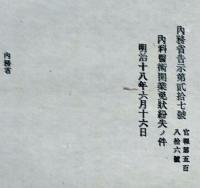 內務省告示第貳拾七號
官報第五百八拾六號
內科醫術開業免狀紛失ノ件
明治十八年六月十六日
內務省